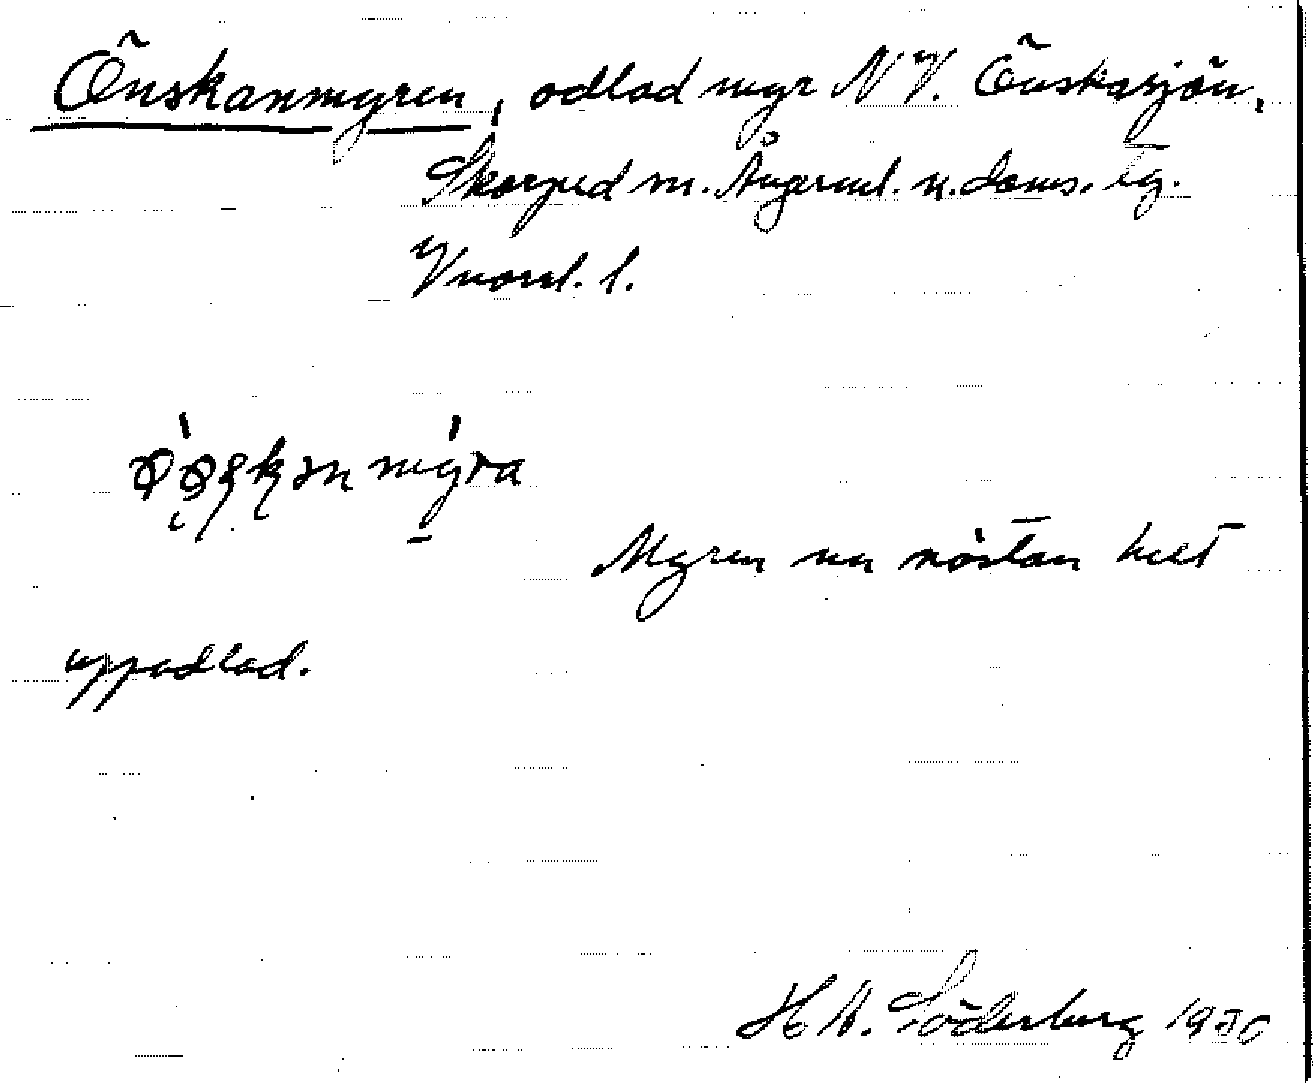 Önskanmyren, odlad myr NV. Önskasjön,
Skorped sn. Ångerml. n. doms. tg.
Vnorrl. l.
myra
Myren nu nästan helt
uppodlad.
H A. Söderberg 1930